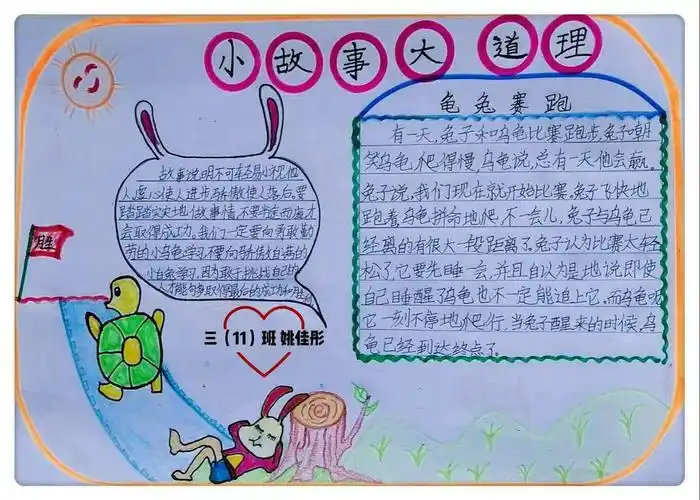 小故事大道理
龟兔赛跑
有一天,兔子和乌龟比赛跑步,兔子嘲
笑乌龟,爬得慢,乌龟说,总有一天他会赢。
兔子说,我们现在就开始比赛。兔子飞快地
跑着,乌龟拼命地爬,不一会儿,兔子与乌龟已
经离的有很大一段距离了,兔子认为比赛太轻
松了,它要先睡一会,并且自以为是地说即使
自己睡醒了乌龟也不一定能追上它。而乌龟呢
它一刻不停地爬行,当兔子醒来的时候,乌
龟已经到达终点了。
故事说明不可轻易小视他
人,虚心使人进步骄傲使人落后。要
踏踏实实地做故事情,不要半途而废才
会取得成功。我们一定要向勇敢勤
劳的小乌龟学习,不要向骄傲自满的
小白兔学习,因为敢于挑战自己的
人才能够取得最后的成功和胜
胜
三(11)班 姚佳彤